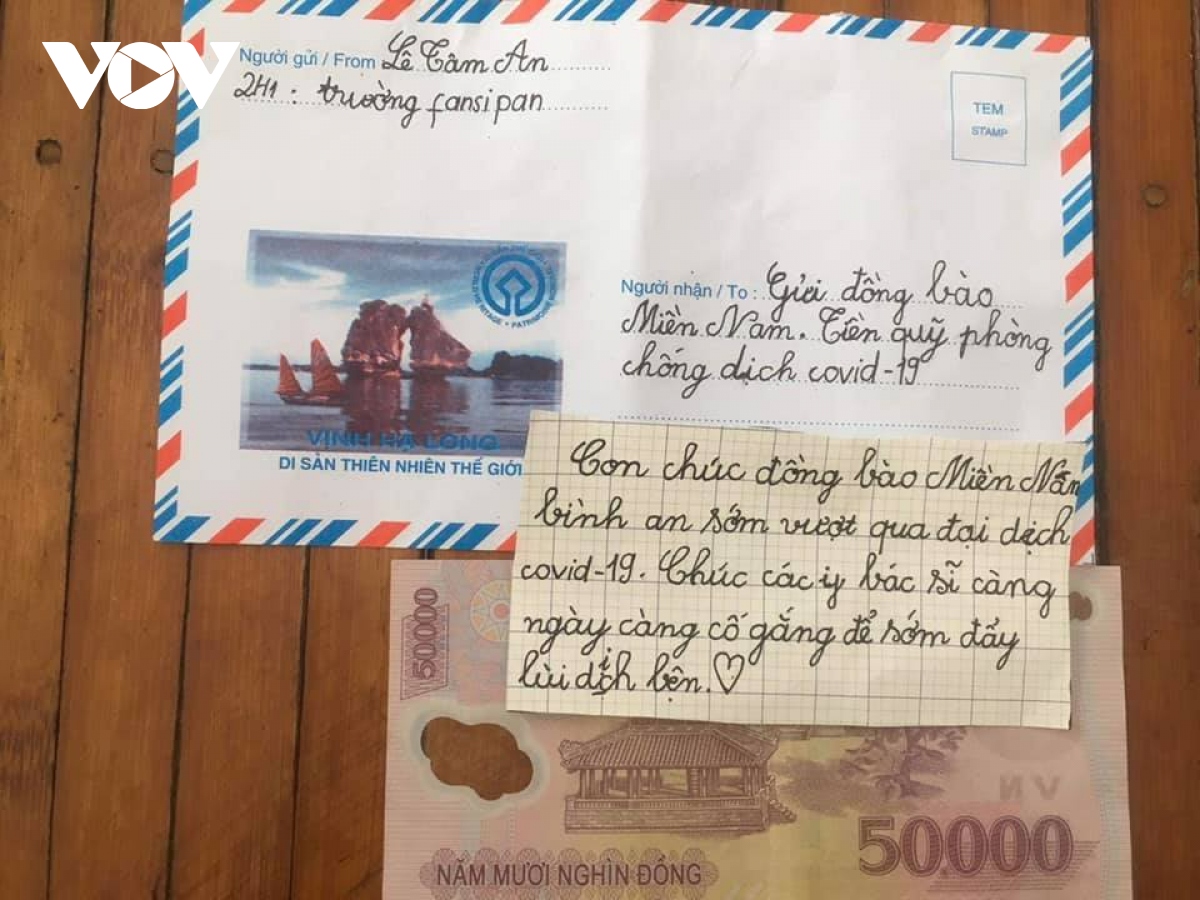 VOV
Người gửi / From Lê Tâm An
2H1 : trường fansipan
TEM
STAMP
Người nhận / To : Gửi đồng bào
Miền Nam. Tiền quỹ phòng
chống dịch covid-19
VỊNH HẠ LONG
DI SẢN THIÊN NHIÊN THẾ GIỚI
Con chúc đồng bào Miền Nam
bình an sớm vượt qua đại dịch
covid-19. Chúc các y bác sĩ càng
ngày càng cố gắng để sớm đẩy
lùi dịch bện. ♡
50000
VN
50.000
NĂM MƯƠI NGHÌN ĐỒNG